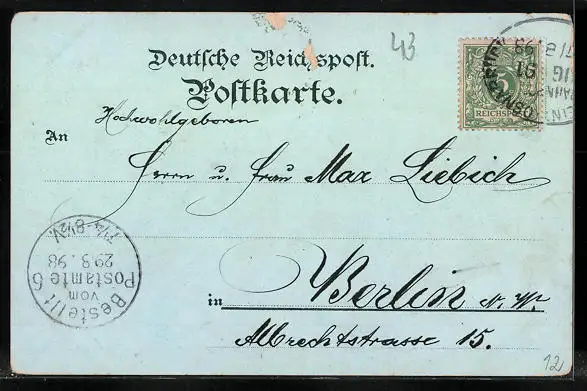 43
Deutsche Reichspost.
Postkarte.
5
REICHSPOST
Hochwohlgeboren
An
Herrn u. Frau Max Liebich
Bestellt
vom
Postamte 6
29.3.98
7¼-8½V.
in Berlin N. W.
Albrechtstrasse 15.
12